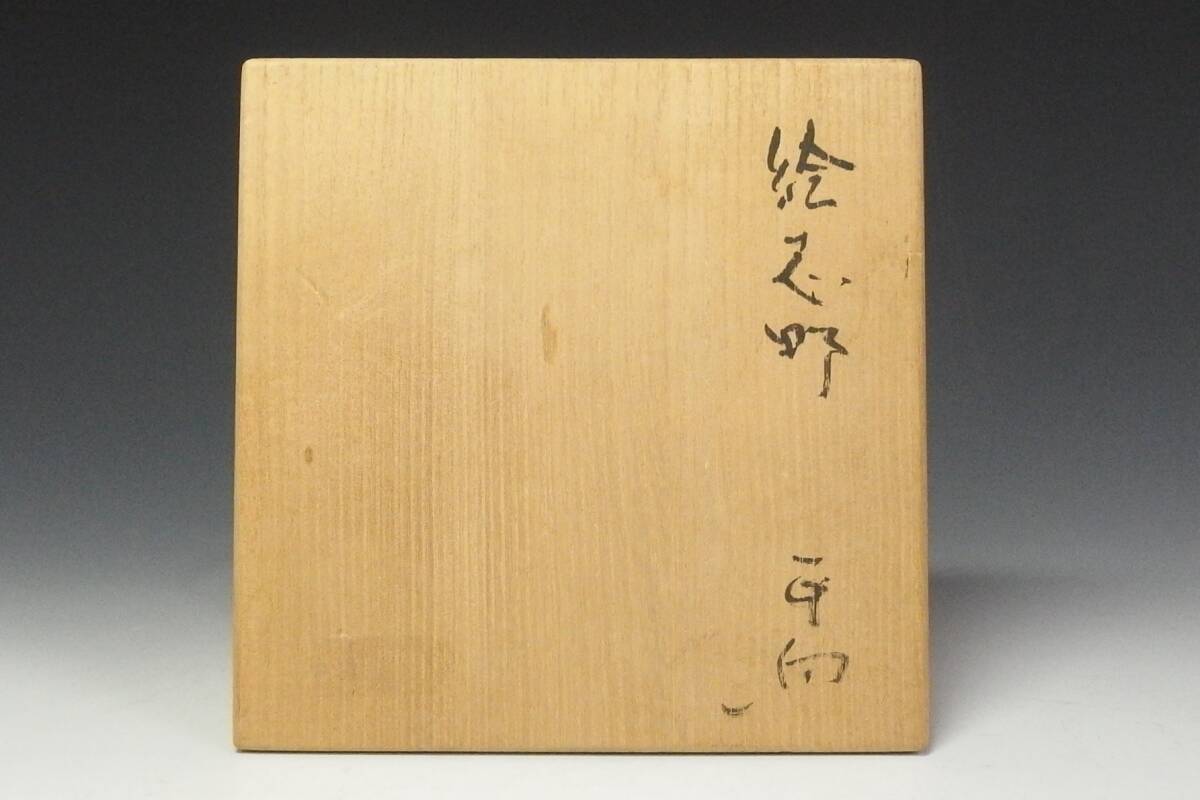 絵志野 平向